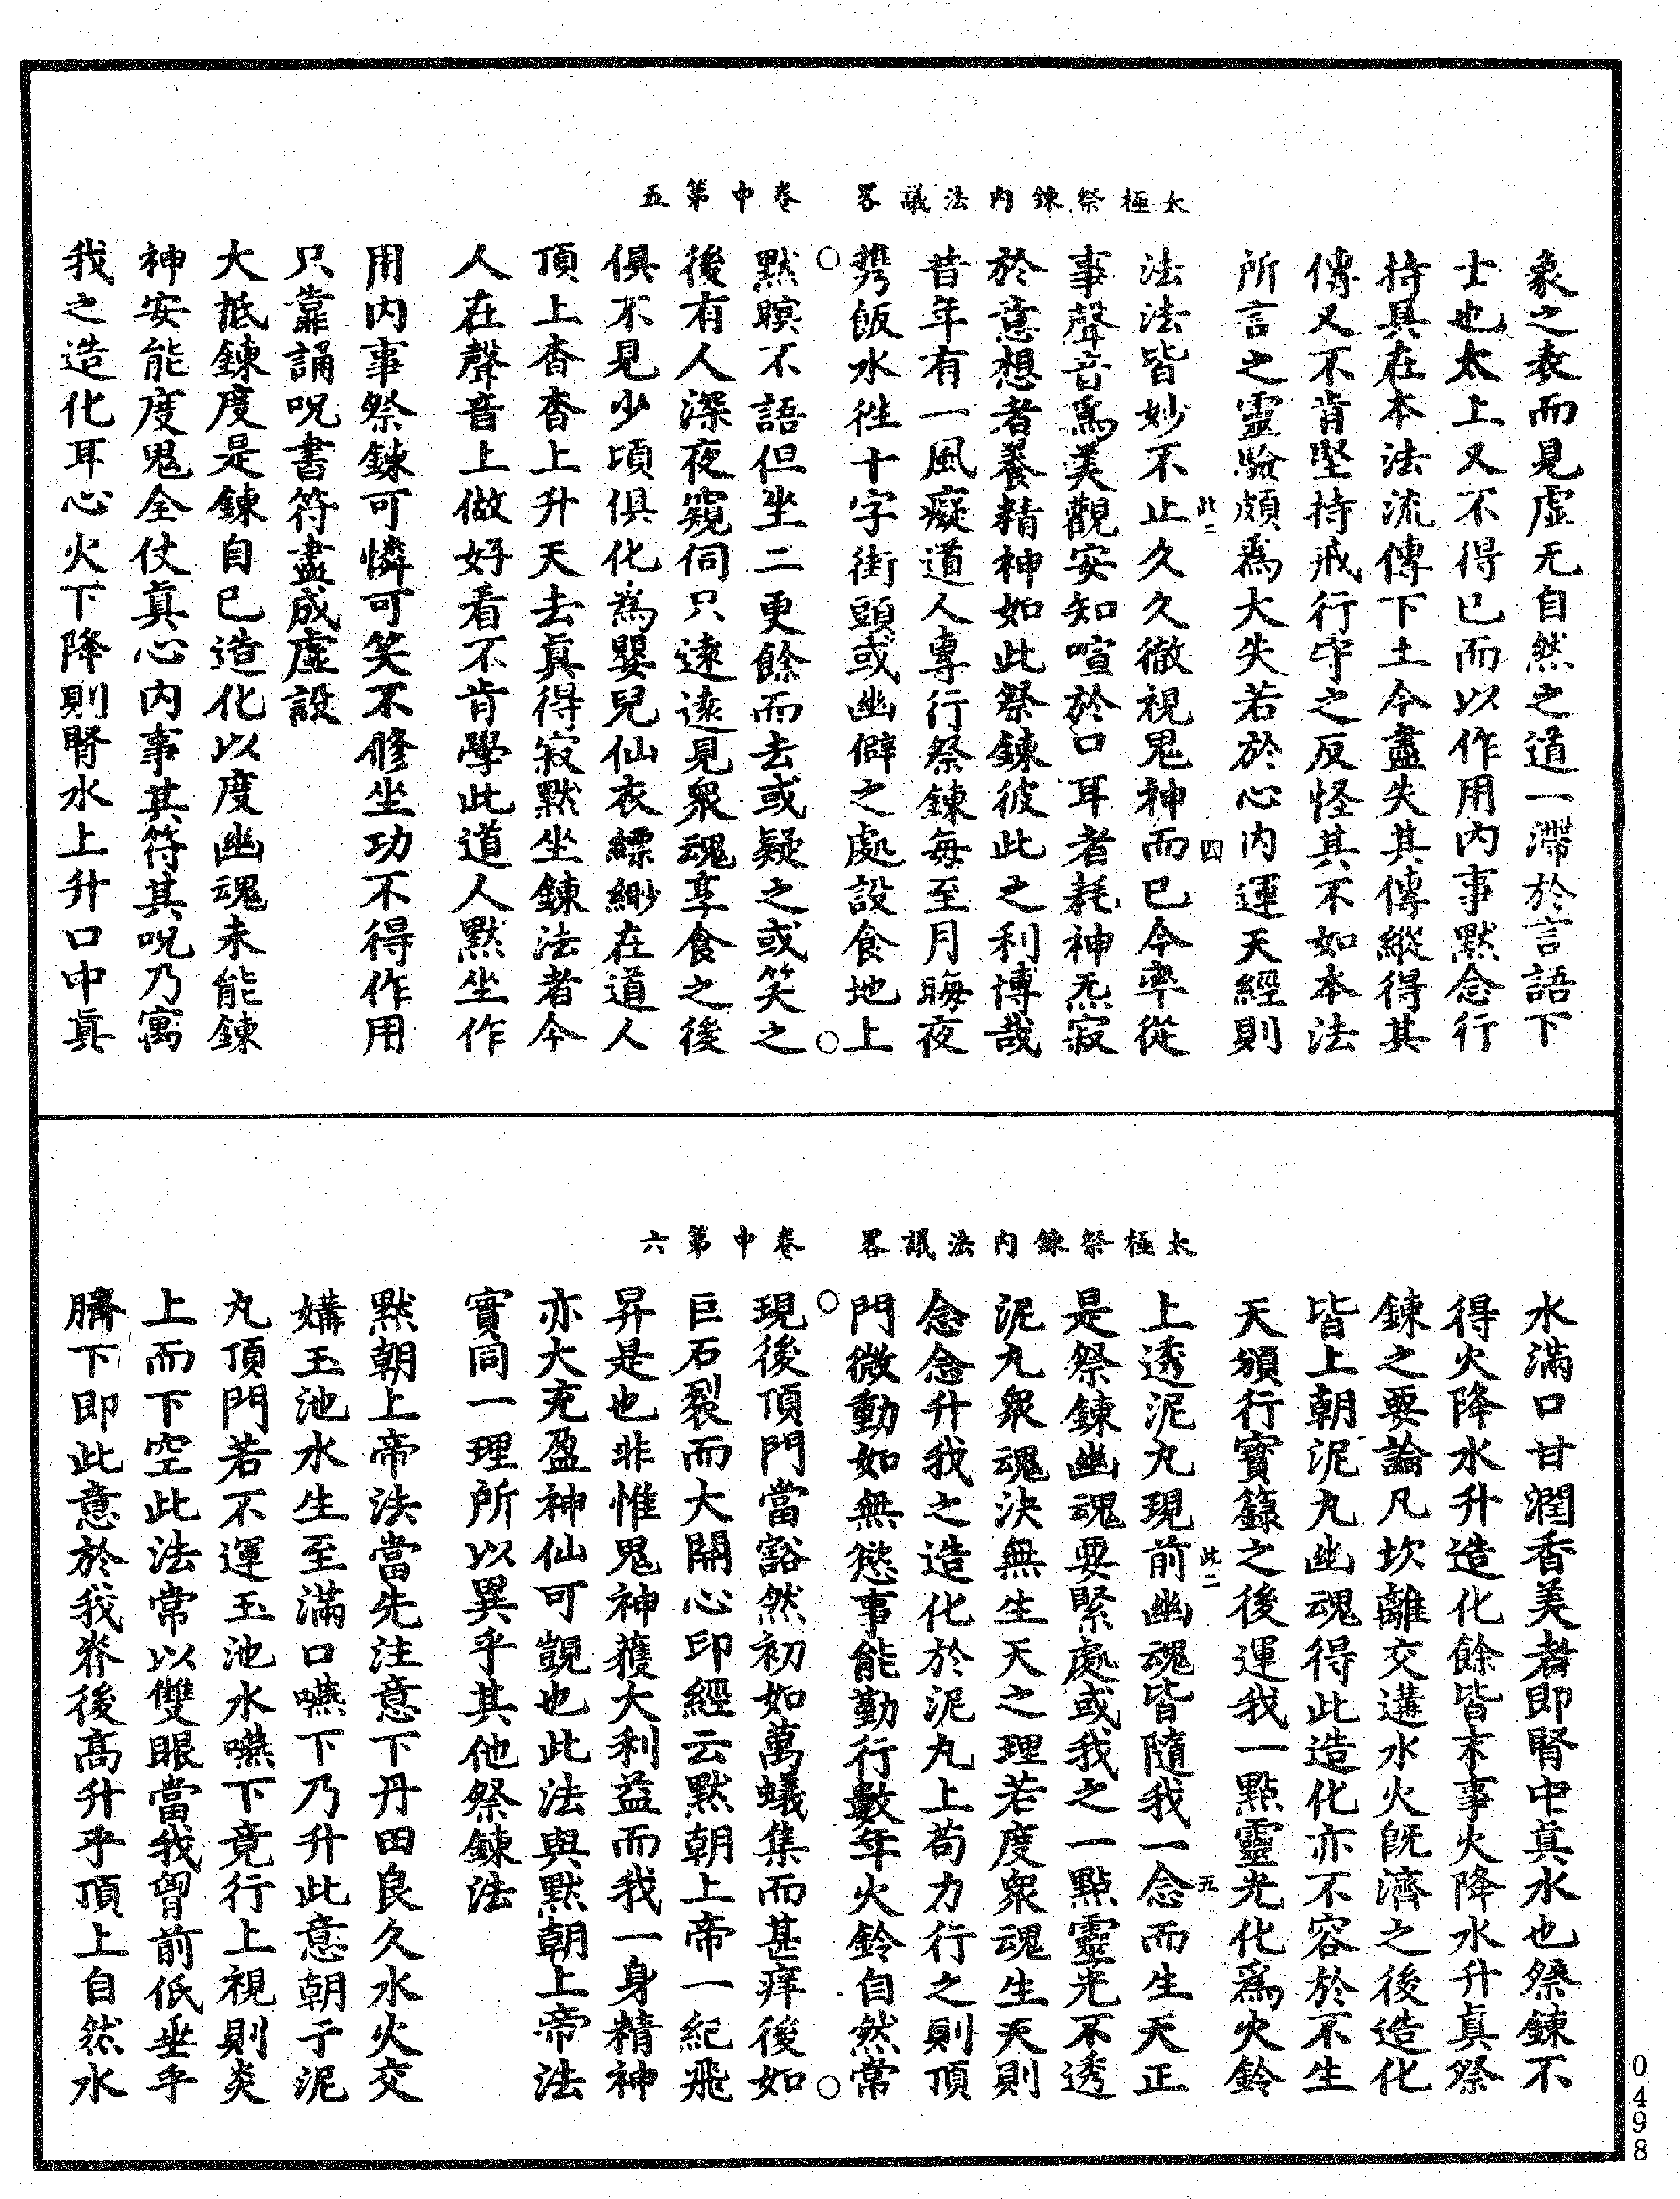 太極祭鍊內法議畧　卷中第五
象之表而見虛无自然之道一滯於言語下
士也太上又不得已而以作用內事默念行
持具在本法流傳下土今盡失其傳縱得其
傳又不肯堅持戒行守之反怪其不如本法
所言之靈驗頗爲大失若於心內運天經則
此二　四
法法皆妙不止久久徹視鬼神而已今率從
事聲音爲美觀安知喧於口耳者耗神炁寂
於意想者養精神如此祭鍊彼此之利博哉
昔年有一風癡道人專行祭鍊每至月晦夜
携飯水徃十字街頭或幽僻之處設食地上
○　○
默瞑不語但坐二更餘而去或疑之或笑之
後有人深夜窺伺只遠遠見衆魂享食之後
俱不見少頃俱化爲嬰兒仙衣縹緲在道人
頂上杳杳上升天去眞得寂默坐鍊法者今
人在聲音上做好看不肯學此道人默坐作
用內事祭鍊可憐可笑不修坐功不得作用
只靠誦呪書符盡成虛設
大抵鍊度是鍊自已造化以度幽魂未能鍊
神安能度鬼全仗眞心內事其符其呪乃寓
我之造化耳心火下降則腎水上升口中眞
太極祭鍊內法議畧　卷中第六
水滿口甘潤香美者即腎中眞水也祭鍊不
得火降水升造化餘皆末事火降水升眞祭
鍊之要論凡坎離交遘水火旣濟之後造化
皆上朝泥丸幽魂得此造化亦不容於不生
天頒行寳籙之後運我一點靈光化爲火鈴
此二　五
上透泥丸現前幽魂皆隨我一念而生天正
是祭鍊幽魂要緊處或我之一點靈光不透
泥丸衆魂決無生天之理若度衆魂生天則
念念升我之造化於泥丸上苟力行之則頂
門微動如無慾事能勤行數年火鈴自然常
○　○
現後頂門當豁然初如萬蟻集而甚痒後如
巨石裂而大開心印經云默朝上帝一紀飛
昇是也非惟鬼神蒦大利益而我一身精神
亦大充盈神仙可覬也此法與默朝上帝法
實同一理所以異乎其他祭鍊法
默朝上帝法當先注意下丹田良久水火交
媾玉池水生至滿口嚥下乃升此意朝于泥
丸頂門若不運玉池水嚥下竟行上視則炎
上而下空此法常以雙眼當我胷前低垂乎
臍下即此意於我脊後髙升乎頂上自然水
0498